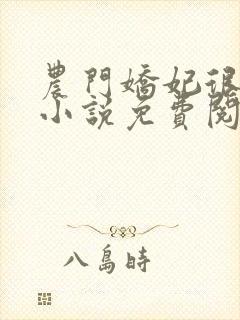 農門嬌妃很
小說免費閱
八島時